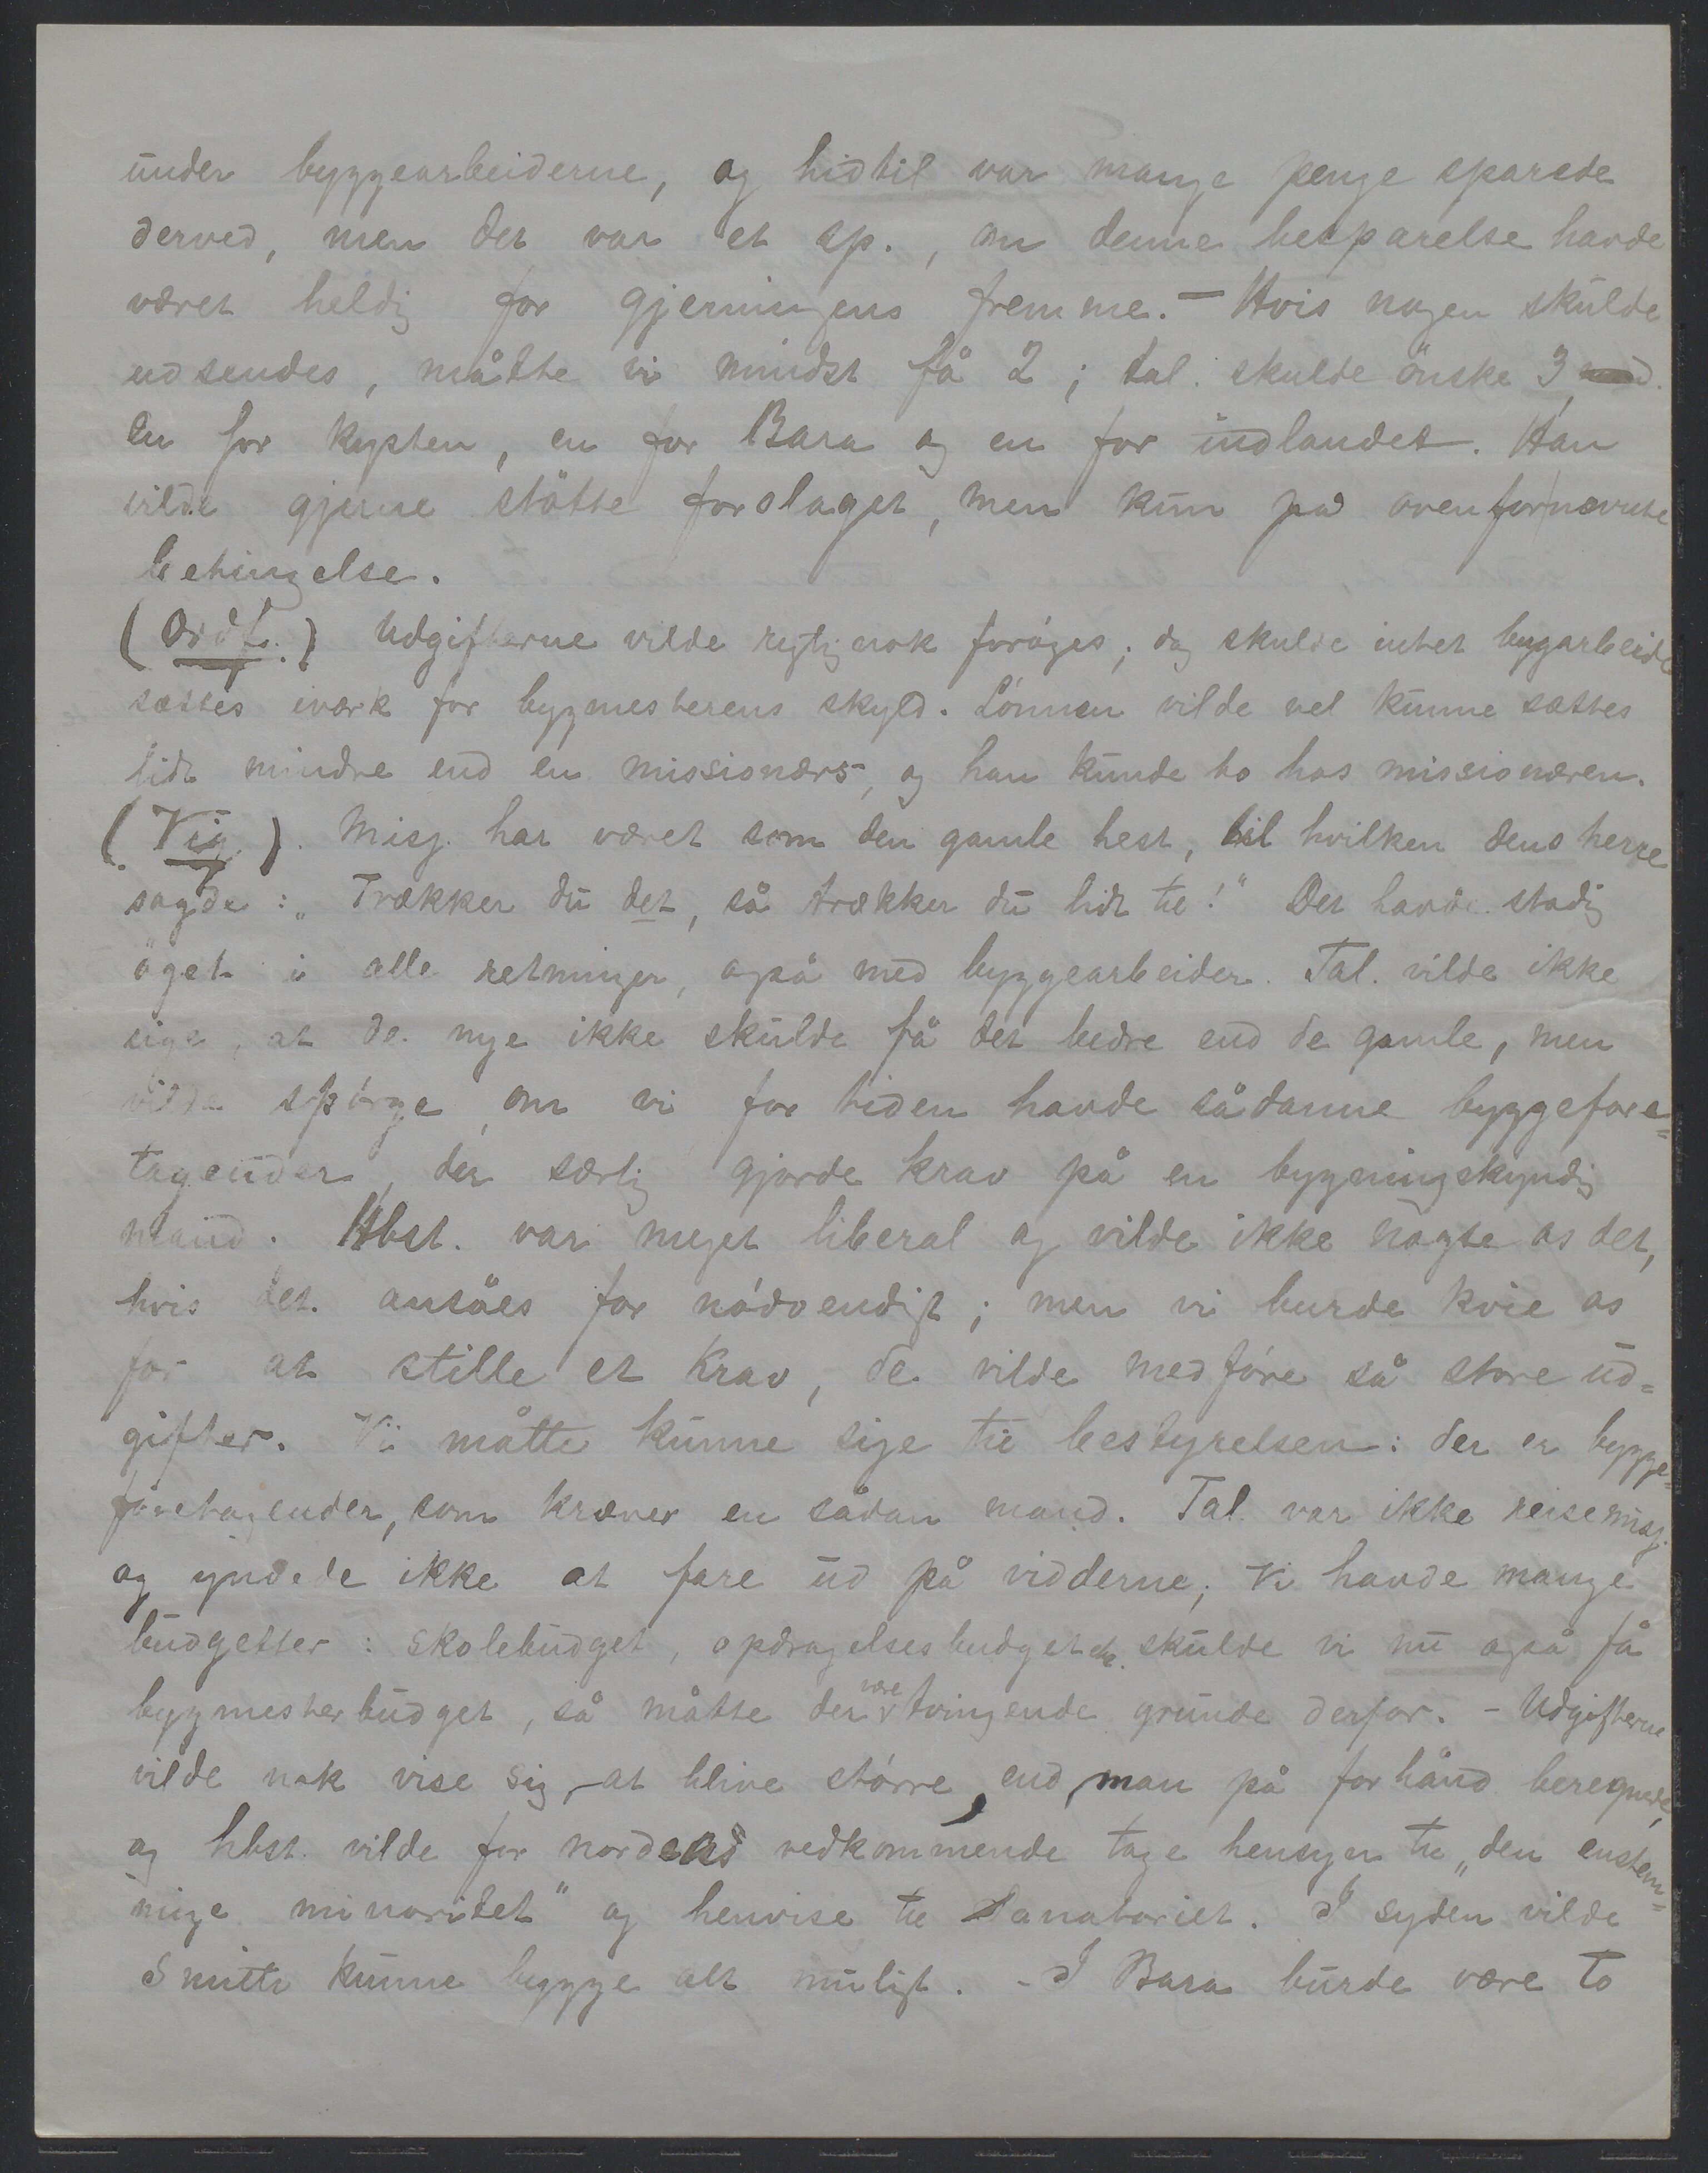 under byggearbeiderne, og hidtil var mange penge sparede
derved, men det var et sp., om denne besparelse havde
været heldig for gjerningens fremme. – Hvis nogen skulde
udsendes, måtte vi mindst få 2; tal. skulde önske 3,
en for kysten, en for Bara og en for indlandet. Han
vilde gjerne stötte forslaget, men kun på ovenfornævnte
betingelse.
(Ordf.) Udgifterne vilde rigtignok forøges; dog skulde intet bygarbeide
sættes iværk for bygmesterens skyld. Lønnen vilde vel kunne sættes
lidt mindre end en missionærs, og han kunde bo hos missionæren.
(Vig.). Misj. har været som den gamle hest, til hvilken dens herre
sagde: „Trækker du det, så trækker du lidt til!" Det havde stadig
öget i alle retninger, også med byggearbeider. Tal. vilde ikke
sige, at de nye ikke skulde få det bedre end de gamle, men
vilde spørge, om vi for tiden havde sådanne byggefore=
tagender, der særlig gjorde krav på en bygningskyndig
mand. Hbst. var meget liberal og vilde ikke nægte os det,
hvis det ansåes for nødvendigt; men vi burde kvie os
for at stille et krav, de vilde medføre så store ud=
gifter. Vi måtte kunne sige til bestyrelsen: der er bygge=
foretagender, som kræver en sådan mand. Tal. var ikke reisemisj.
og yndede ikke at fare ud på vidderne; Vi havde mange
budgetter: skolebudget, opdragelsesbudget etc. skulde vi nu også få
bygmesterbudget, så måtte der være tvingende grunde derfor. – Udgifterne
vilde nok vise sig at blive større, end man på forhånd beregnede,
og hbst. vilde for nordens vedkommende tage hensyn til „den enstem=
mige minoritet" og henvise til Sanatoriet. I syden vilde
Smith kunne bygge alt muligt. – I Bara burde være to